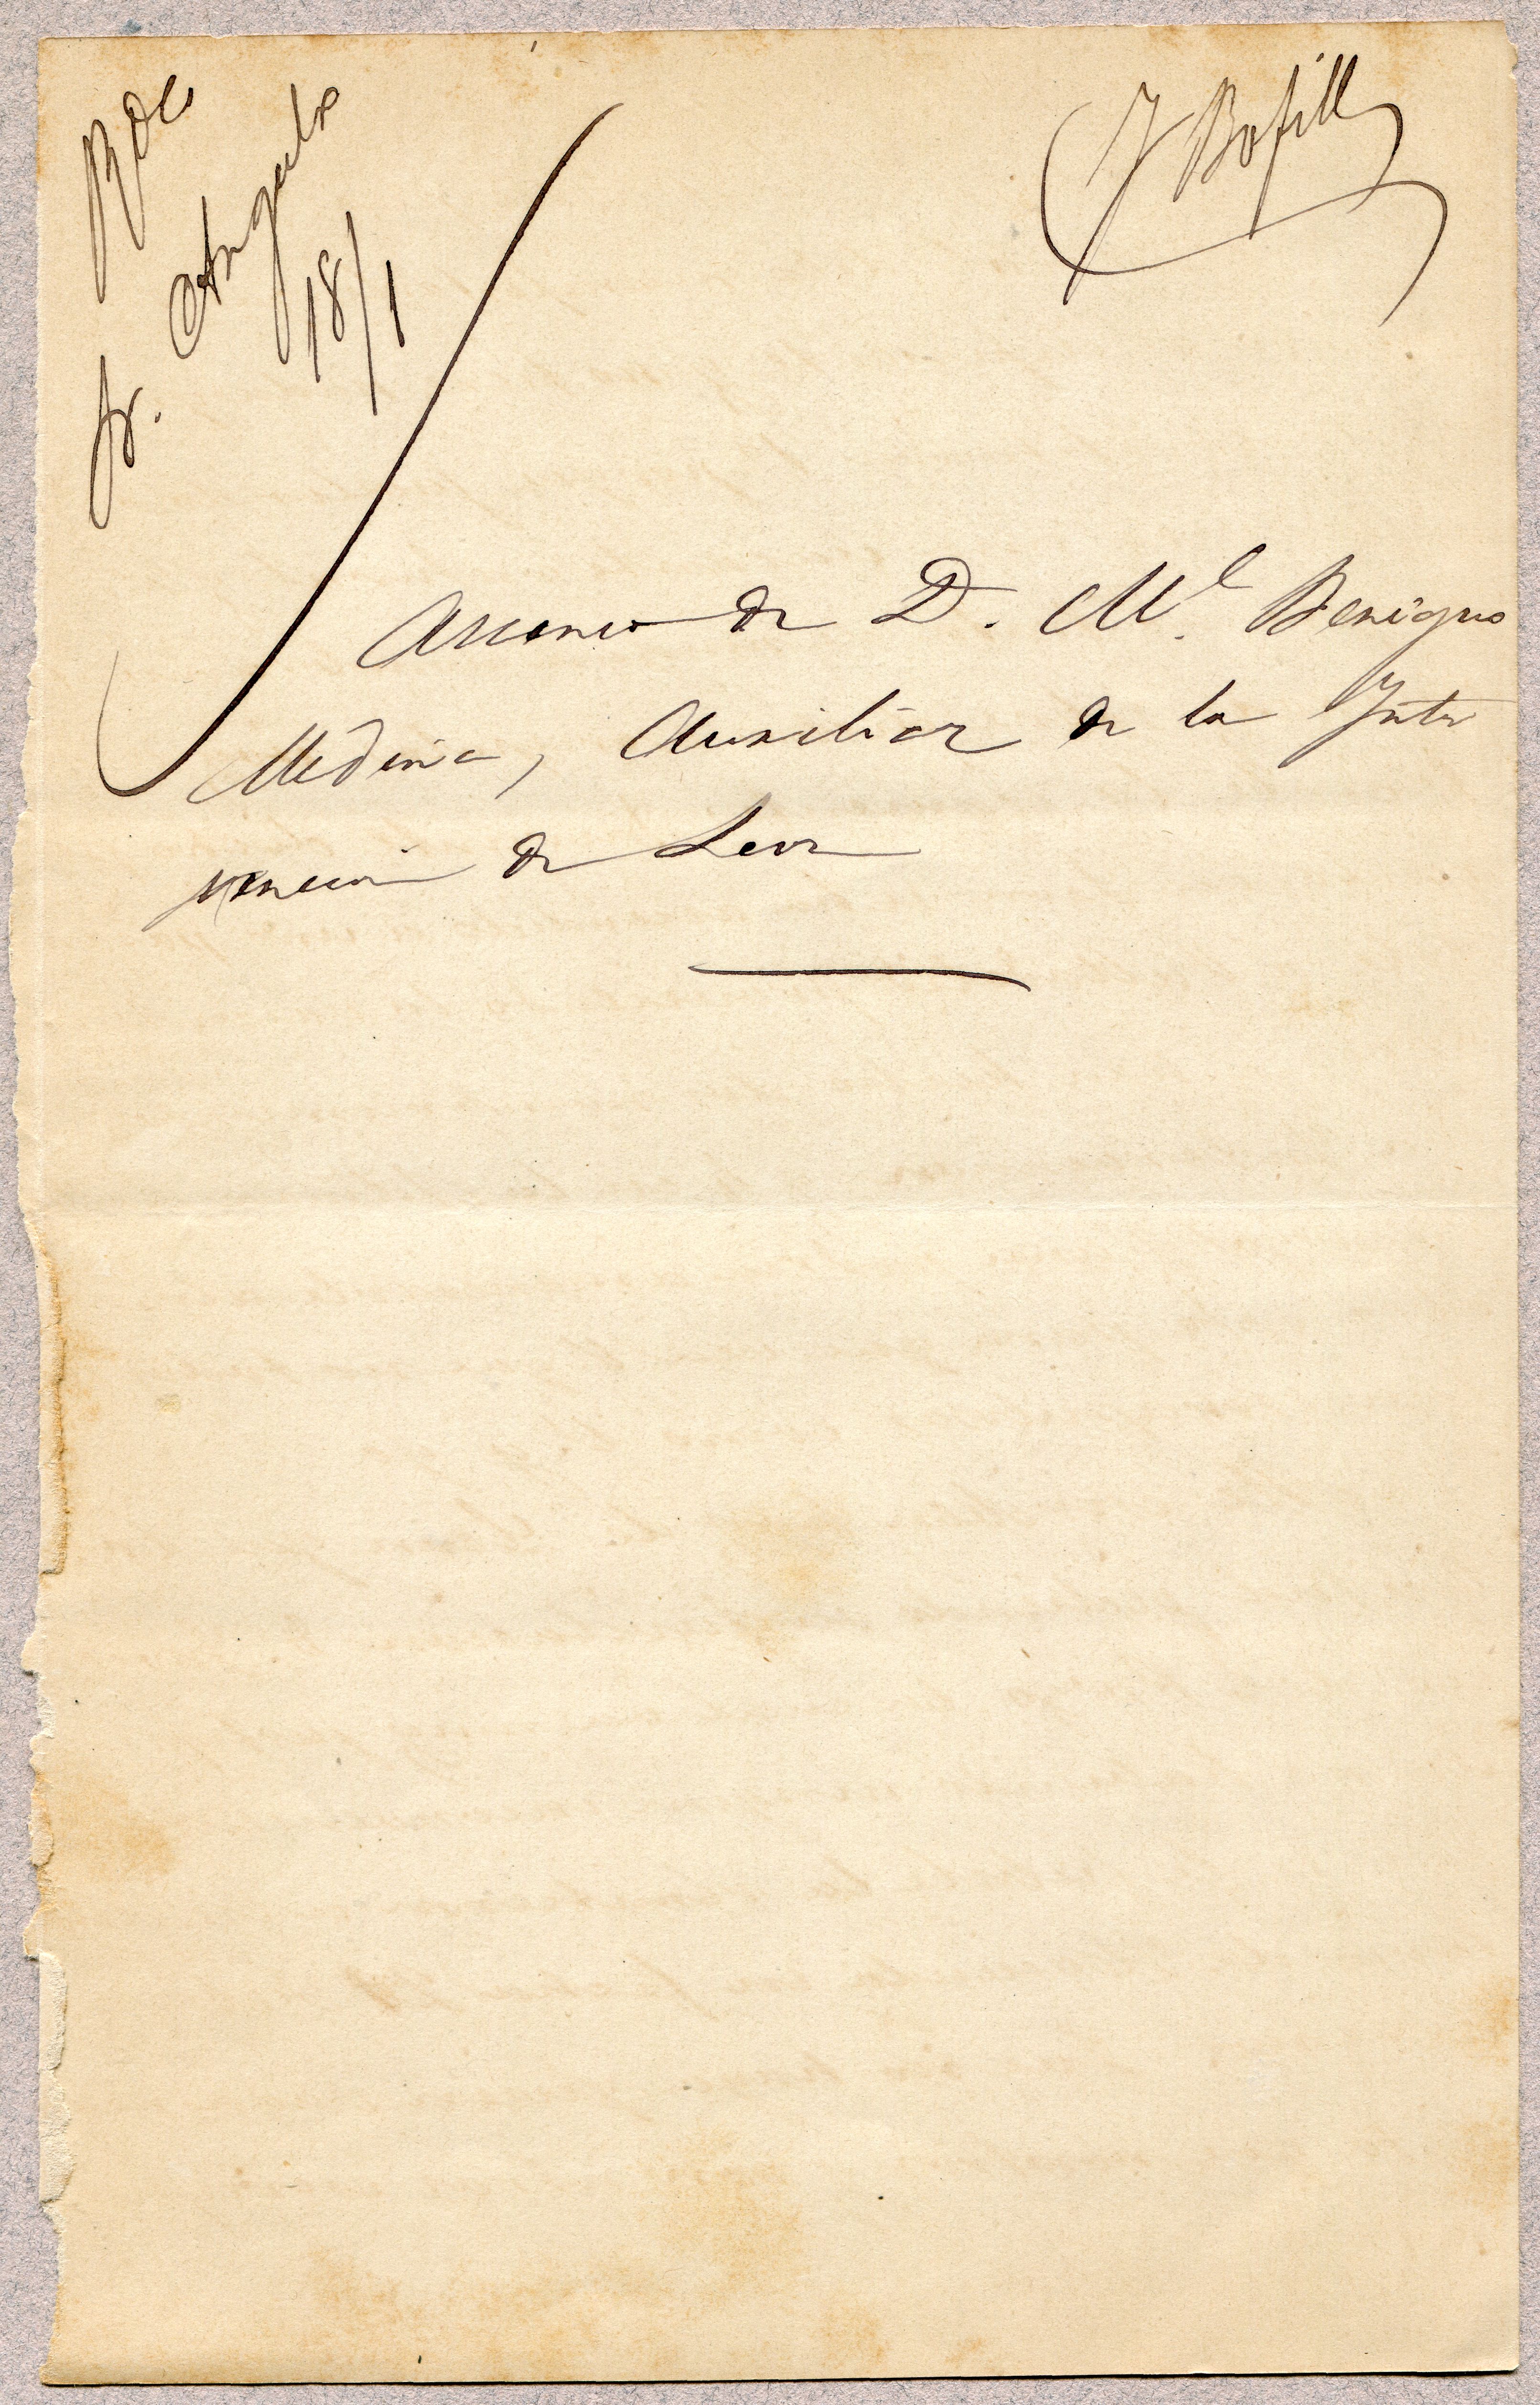 Sr. Angulo
18/1
J Bofill
Ascenso de D. M.l Benigno
Medina, Auxiliar de la Inter
vencion de Leon